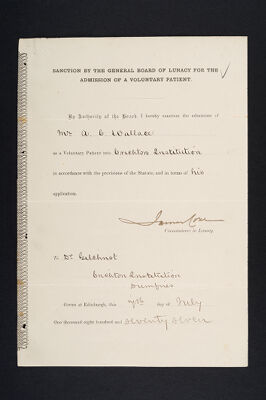 SANCTION BY THE GENERAL BOARD OF LUNACY FOR THE
ADMISSION OF A VOLUNTARY PATIENT.
By Authority of the Board I hereby sanction the admission of
Mr A. C. Wallace
as a Voluntary Patient into Crichton Institution
in accordance with the provisions of the Statute, and in terms of his
application.
James Coxe
Commissioner in Lunacy.
To Dr Gilchrist
Crichton Institution
Dumfries
Given at Edinburgh, this 7th day of July
One thousand eight hundred and seventy seven